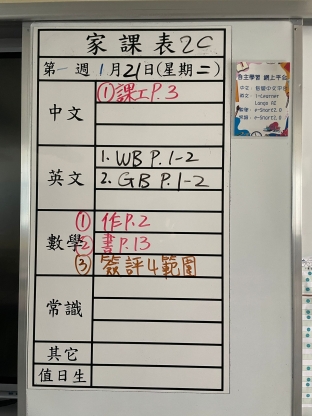 家課表2C
第一週 1月21日(星期二)
中文
①課工P.3
英文
1. WB P.1-2
2. GB P.1-2
數學
① 作P.2
② 書P.13
③ 簽評4範圍
常識
其它
值日生
自主學習 網上平台